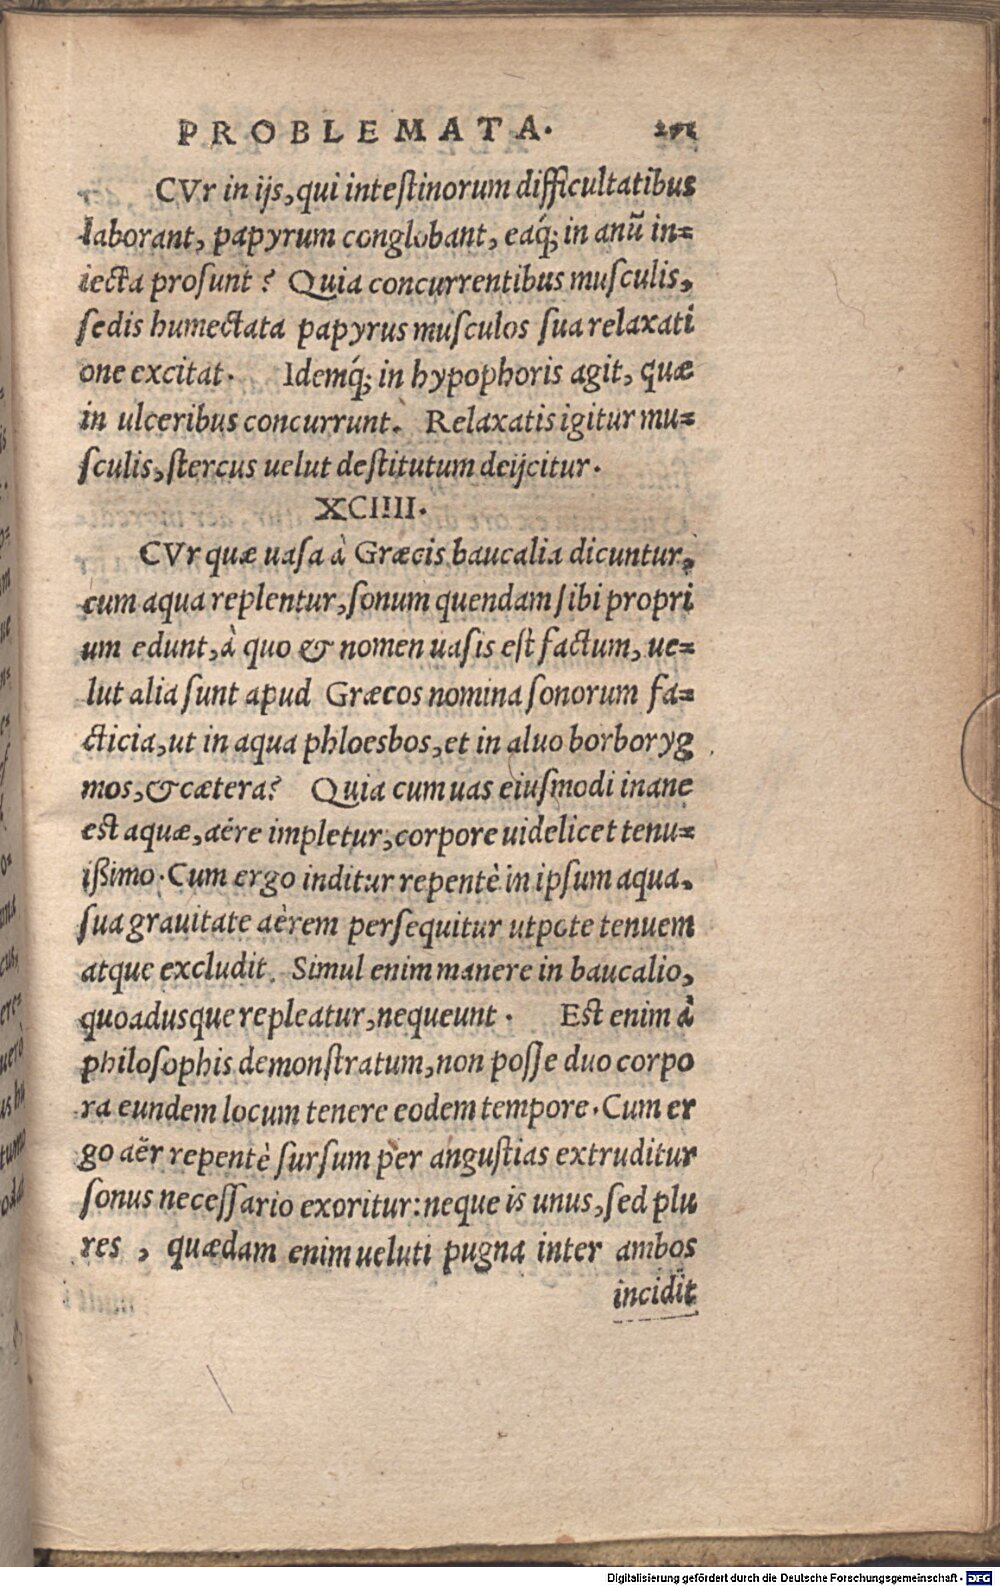 PROBLEMATA.
CVr in ijs, qui intestinorum difficultatibus
laborant, papyrum conglobant, eaq́; in anũ in=
iecta prosunt? Quia concurrentibus musculis,
sedis humectata papyrus musculos sua relaxati
one excitat. Idemq́; in hypophoris agit, quæ
in ulceribus concurrunt. Relaxatis igitur mu=
sculis, stercus uelut destitutum deijcitur.
XCIIII.
CVr quæ uasa à Græcis baucalia dicuntur,
cum aqua replentur, sonum quendam sibi propri
um edunt, à quo & nomen uasis est factum, ue=
lut alia sunt apud Græcos nomina sonorum fa=
cticia, ut in aqua phloesbos, et in aluo borboryg
mos, & cætera? Quia cum uas eiusmodi inane
est aquæ, aëre impletur, corpore uidelicet tenu=
ißimo. Cum ergo inditur repentè in ipsum aqua,
sua grauitate aërem persequitur utpote tenuem
atque excludit. Simul enim manere in baucalio,
quoadusque repleatur, nequeunt. Est enim à
philosophis demonstratum, non posse duo corpo
ra eundem locum tenere eodem tempore. Cum er
go aër repentè sursum per angustias extruditur
sonus necessario exoritur: neque is unus, sed plu
res, quædam enim ueluti pugna inter ambos
incidit
Digitalisierung gefördert durch die Deutsche Forschungsgemeinschaft - DFG